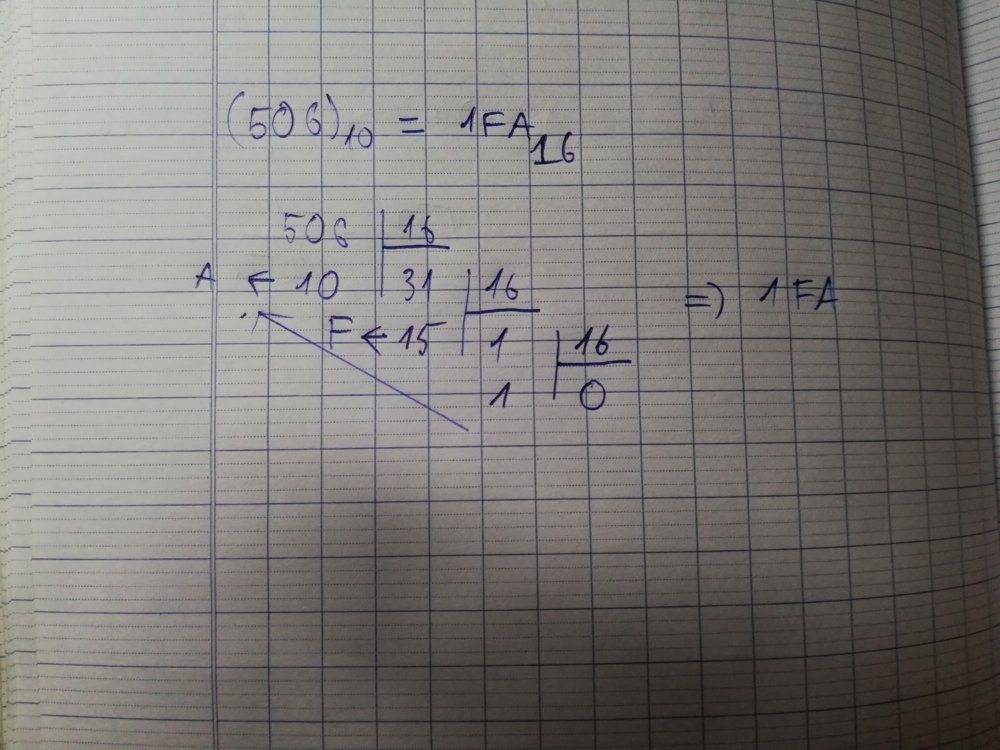 (506)10 = 1FA16
506 | 16
A ← 10 | 31 | 16 => 1FA
F ← 15 | 1 | 16
1 | 0